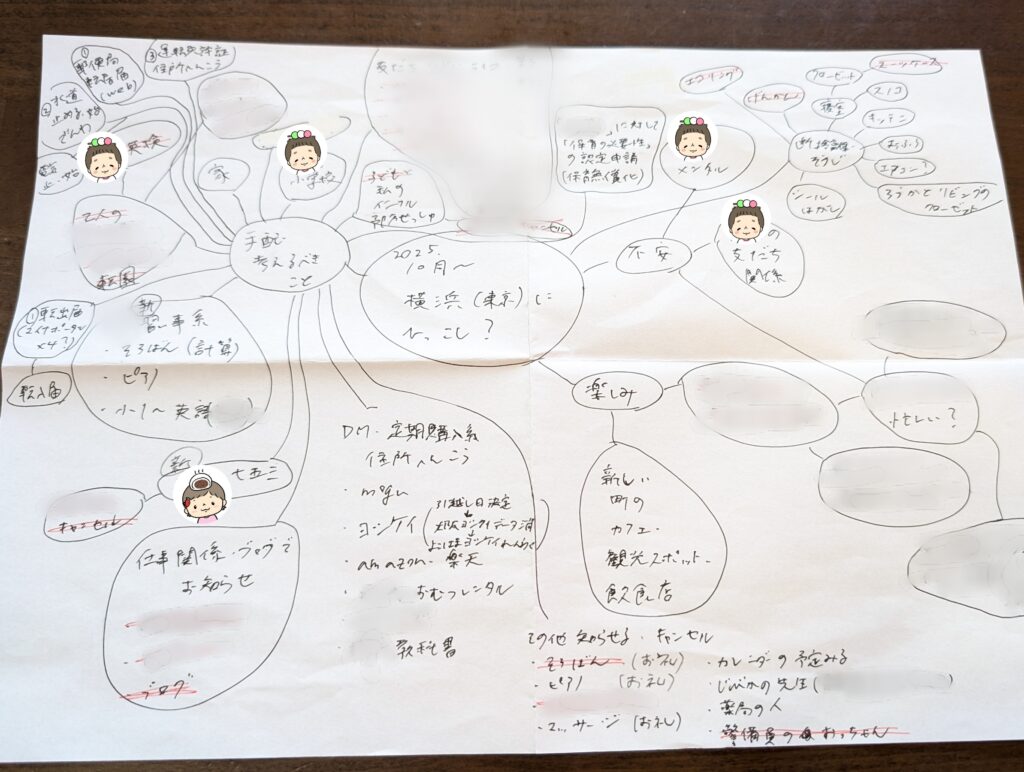 2025.
10月〜
横浜(東京)に
ひっこし?
手配
考えるべき
こと
①
郵便局
転居届
(web)
②
水道
止める・始
でんわ
③運転免許証
住所へんこう
英検
2人の
転園
家
小学校
子どもと
私の
インフル
予防せっしゅ
に対して
「保育の必要性」
の認定申請
(保育無償化)
メンタル
不安
の
友だち
関係
エプリング
げんかん
クローゼット
スーツケース
寝室
スノコ
キッチン
おふろ
エアコン?
ろうかとリビングの
クローゼット
そうじ
シール
はがし
①転出届
(マイナポータル
×4?)
転入届
新
習い事系
・そろばん(計算)
・ピアノ
・小1〜英語
新
七五三
キャンセル
仕事関係・ブログで
お知らせ
ブログ
DM・定期購入系
住所へんこう
・mogu
・ヨシケイ
引越し日決定
大阪ヨシケイデータ消
よこはまヨシケイれんらく
・amazon・楽天
おむつレンタル
教科書
楽しみ
新しい
町の
カフェ・
観光スポット・
飲食店
忙しい?
その他 知らせる・キャンセル
・そろばん(お礼)
・ピアノ(お礼)
・マッサージ(お礼)
・カレンダーの予定みる
・じびかの先生(
・薬局の人
・警備員のおっちゃん